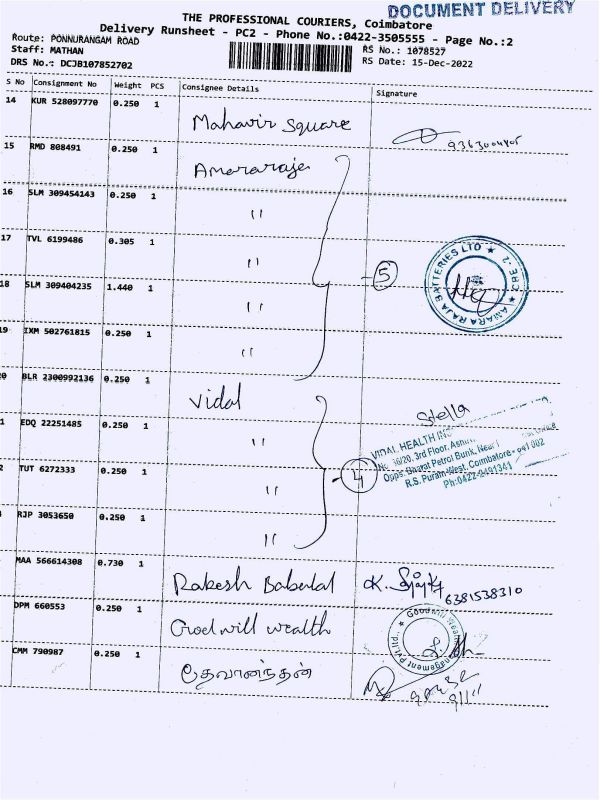 DOCUMENT DELIVERY
THE PROFESSIONAL COURIERS, Coimbatore
Delivery Runsheet - PC2 - Phone No.:0422-3505555 - Page No.:2
Route: PONNURANGAM ROAD
Staff: MATHAN
DRS No.: DCJB107852702
RS No.: 1078527
RS Date: 15-Dec-2022
S No Consignment No Weight PCS Consignee Details Signature
14 KUR 528097770 0.250 1 Mahavir Square
15 RMD 808491 0.250 1 Amararaje
16 SLM 309454143 0.250 1 "
17 TVL 6199486 0.305 1 "
18 SLM 309404235 1.440 1 "
19 IXM 502761815 0.250 1 "
5
AMARA RAJA BATTERIES LTD ★ CBE-2 ★
0 BLR 2300992136 0.250 1 Vidal
1 EDQ 22251485 0.250 1 "
2 TUT 6272333 0.250 1 "
RJP 3053650 0.250 1 "
4
Stella
VIDAL HEALTH
3rd Floor,
Opps. Bharat Petrol Bunk, Near
R.S. Puram West, Coimbatore - 641 002
Ph:0422-2491341
MAA 566614308 0.730 1 Rakesh Babulal
6381538310
DPM 660553 0.250 1 Good will wealth
Goodwill Wealth Management Pvt Ltd
CMM 790987 0.250 1 தேவானந்தன்